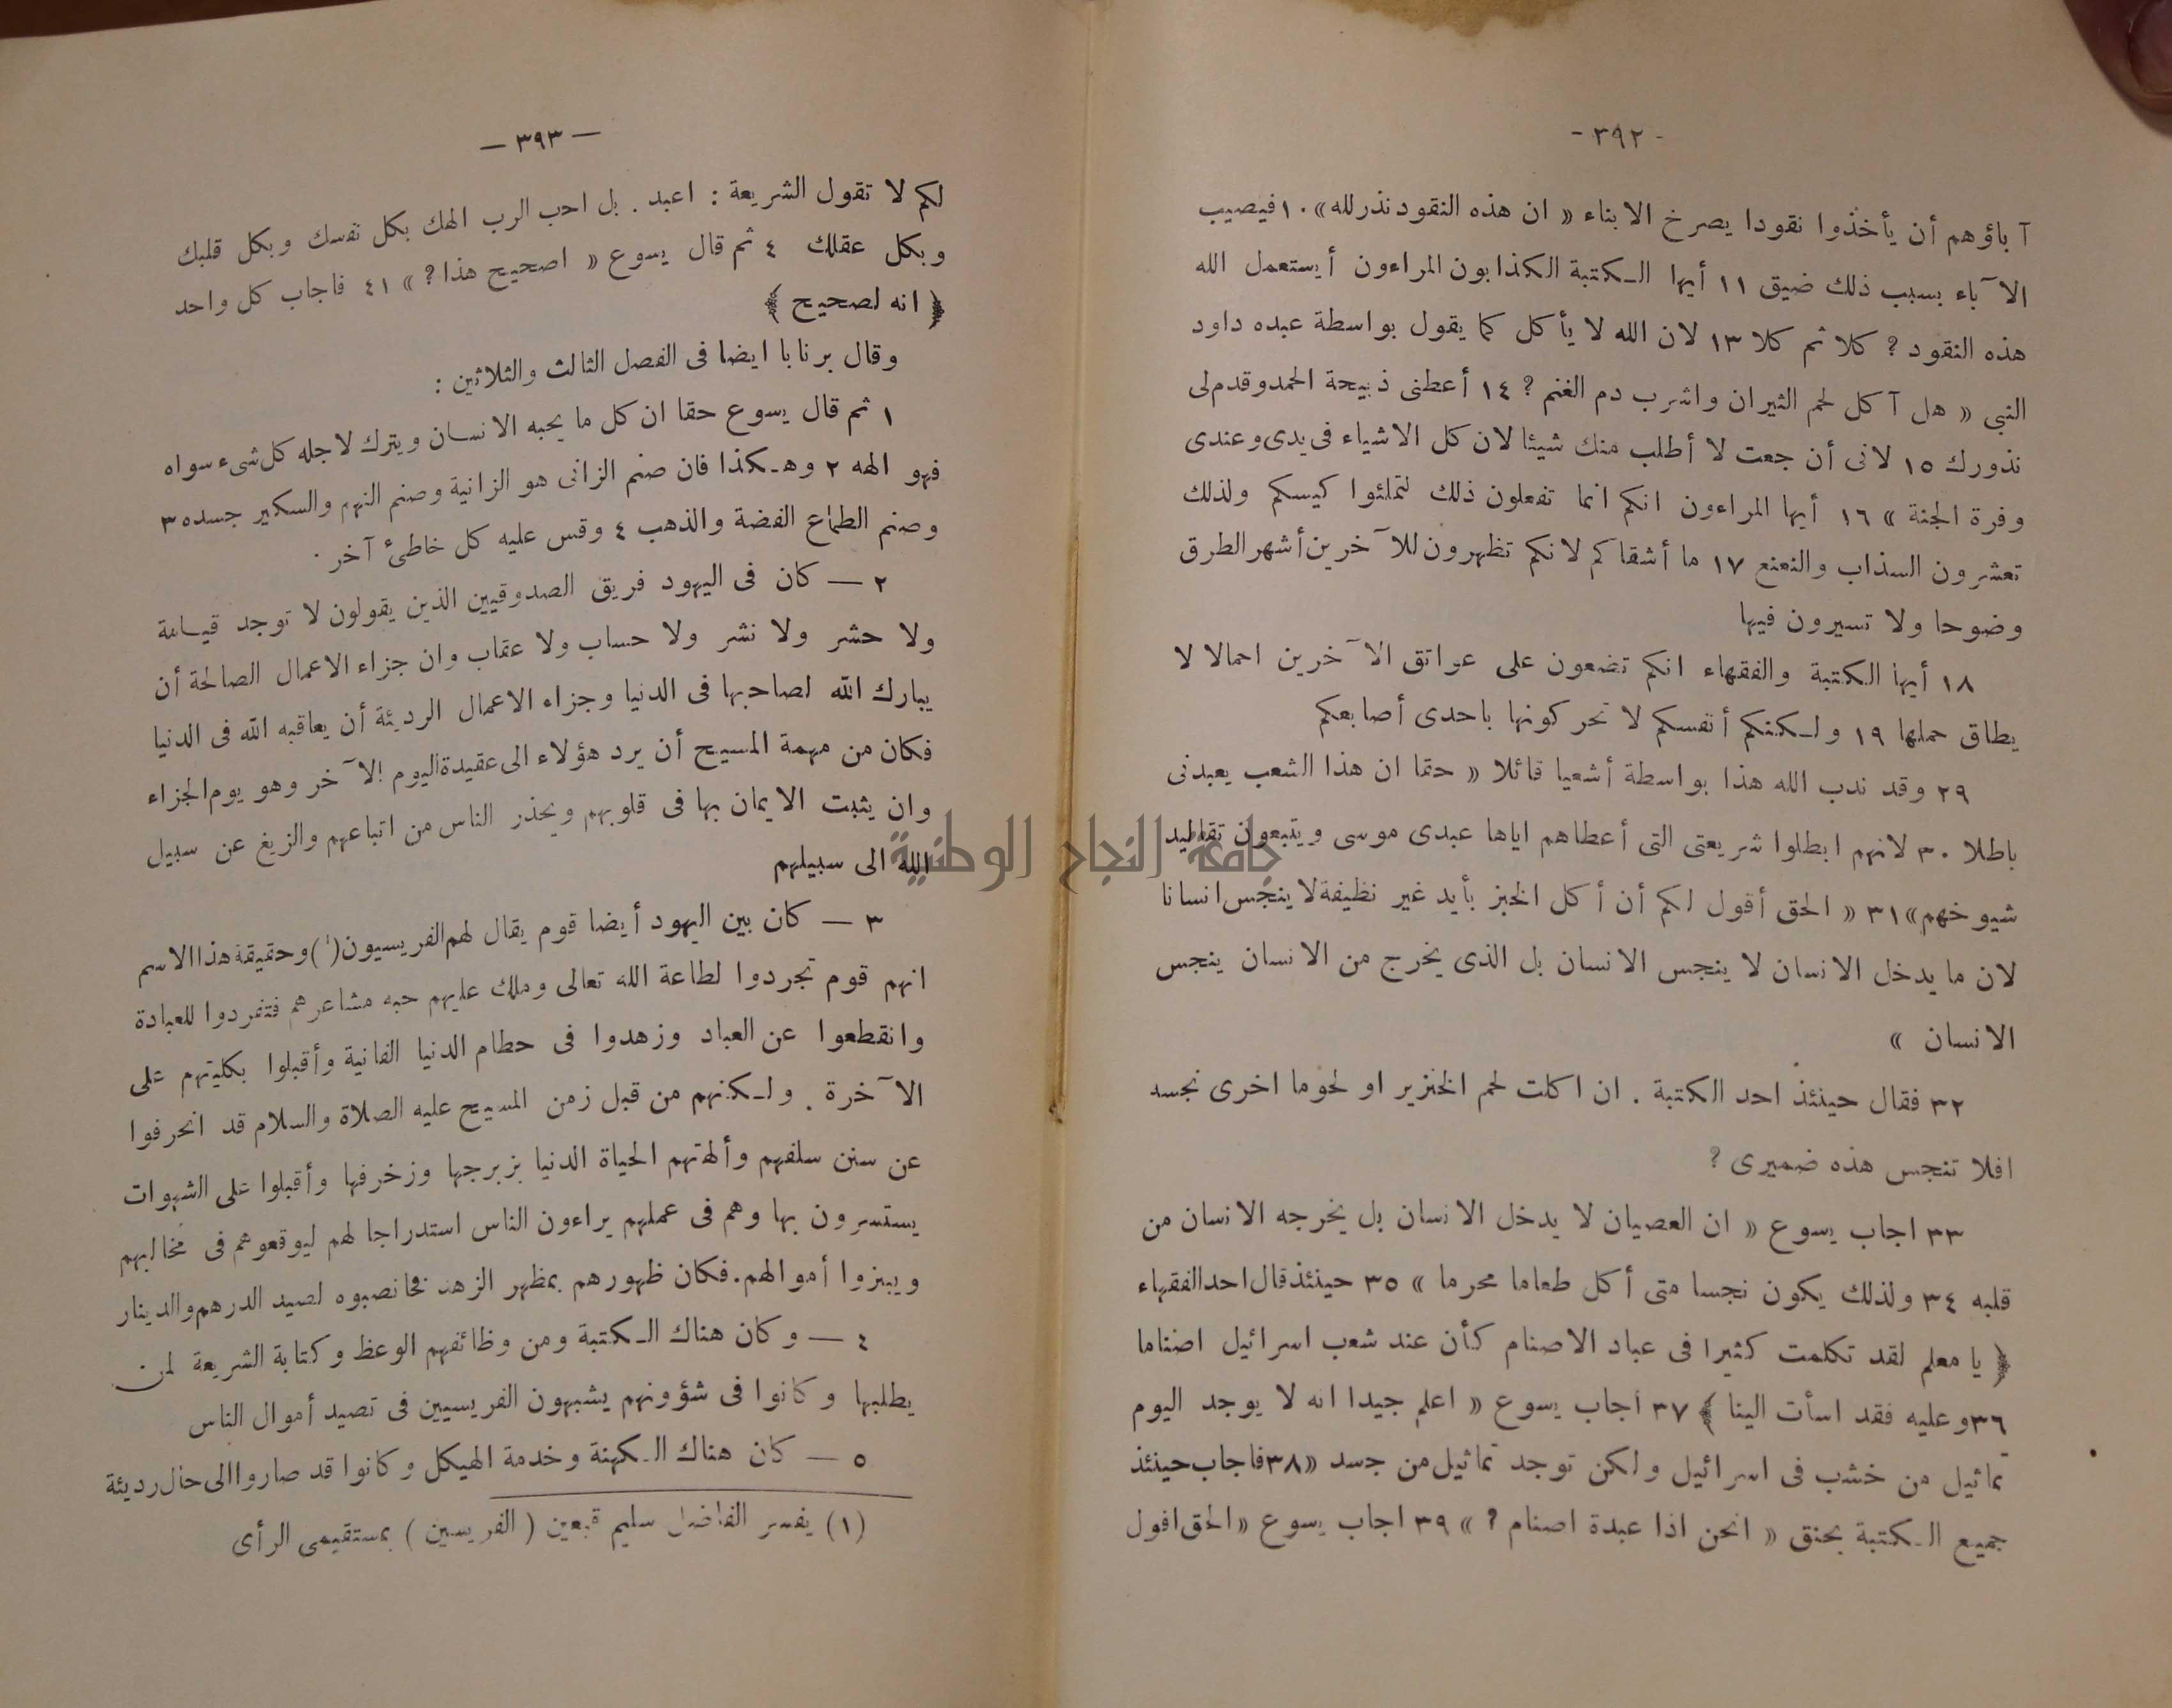 - ٣٩٢ -
آباؤهم أن يأخذوا نقودا يصرخ الابناء « ان هذه النقود نذر لله» ١٠ فيصيب
الآباء بسبب ذلك ضيق ١١ أيها الكتبة الكذابون المراءون أيستعمل الله
هذه النقود ؟ كلا ثم كلا ١٣ لان الله لا يأكل كما يقول بواسطة عبده داود
النبي « هل آكل لحم الثيران واشرب دم الغنم ؟ ١٤ أعطنى ذبيحة الحمد وقدم لى
نذورك ١٥ لانى أن جعت لا أطلب منك شيئا لان كل الاشياء فى يدى وعندى
وفرة الجنة » ١٦ أيها المراءون انكم انما تفعلون ذلك لتملئوا كيسكم ولذلك
تعشرون السذاب والنعنع ١٧ ما أشقاكم لانكم تظهرون للآخرين أشهر الطرق
وضوحا ولا تسيرون فيها
١٨ أيها الكتبة والفقهاء انكم تضعون على عواتق الآخرين احمالا لا
يطاق حملها ١٩ ولكنكم أنفسكم لا تحركونها باحدى أصابعكم
٢٩ وقد ندب الله هذا بواسطة أشعيا قائلا « حقا ان هذا الشعب يعبدنى
باطلا ٣٠ لانهم ابطلوا شريعتى التى أعطاهم اياها عبدى موسى ويتبعون تقاليد
شيوخهم» ٣١ « الحق أقول لكم أن أكل الخبز بأيد غير نظيفة لا ينجس انسانا
لان ما يدخل الانسان لا ينجس الانسان بل الذى يخرج من الانسان ينجس
الانسان »
٣٢ فقال حينئذ احد الكتبة . ان اكلت لحم الخنزير او لحوما اخرى نجسة
افلا تنجس هذه ضميرى ؟
٣٣ اجاب يسوع « ان العصيان لا يدخل الانسان بل يخرجه الانسان من
قلبه ٣٤ ولذلك يكون نجسا متى أكل طعاما محرما » ٣٥ حينئذ قال احد الفقهاء
﴿ يا معلم لقد تكلمت كثيرا فى عباد الاصنام كأن عند شعب اسرائيل اصناما
٣٦ وعليه فقد اسأت الينا ﴾ ٣٧ اجاب يسوع « اعلم جيدا انه لا يوجد اليوم
تماثيل من خشب فى اسرائيل ولكن توجد تماثيل من جسد «٣٨ فاجاب حينئذ
جميع الكتبة بحنق « انحن اذا عبدة اصنام ؟ » ٣٩ اجاب يسوع « الحق اقول
— ٣٩٣ —
لكم لا تقول الشريعة : اعبد . بل احب الرب الهك بكل نفسك وبكل قلبك
وبكل عقلك ٤ ثم قال يسوع « اصحيح هذا ؟ » ٤١ فاجاب كل واحد
﴿ انه لصحيح ﴾
وقال برنابا ايضا فى الفصل الثالث والثلاثين :
١ ثم قال يسوع حقا ان كل ما يحبه الانسان ويترك لاجله كل شىء سواه
فهو الهه ٢ وهكذا فان صنم الزانى هو الزانية وصنم النهم والسكير جسده ٣
وصنم الطماع الفضة والذهب ٤ وقس عليه كل خاطئ آخر .
٢ — كان فى اليهود فريق الصدوقيين الذين يقولون لا توجد قيامة
ولا حشر ولا نشر ولا حساب ولا عقاب وان جزاء الاعمال الصالحة أن
يبارك الله لصاحبها فى الدنيا وجزاء الاعمال الرديئة أن يعاقبه الله فى الدنيا
فكان من مهمة المسيح أن يرد هؤلاء الى عقيدة اليوم الآخر وهو يوم الجزاء
وان يثبت الايمان بها فى قلوبهم ويحذر الناس من اتباعهم والزيغ عن سبيل
الله الى سبيلهم
٣ — كان بين اليهود أيضا قوم يقال لهم الفريسيون(١) وحقيقة هذا الاسم
انهم قوم تجردوا لطاعة الله تعالى وملك عليهم حبه مشاعرهم فتفردوا للعبادة
وانقطعوا عن العباد وزهدوا فى حطام الدنيا الفانية وأقبلوا بكليتهم على
الآخرة . ولكنهم من قبل زمن المسيح عليه الصلاة والسلام قد انحرفوا
عن سنن سلفهم وألهتهم الحياة الدنيا بزبرجها وزخرفها وأقبلوا على الشهوات
يستسرون بها وهم فى عملهم يراءون الناس استدراجا لهم ليوقعوهم فى مخالبهم
ويبتزوا أموالهم. فكان ظهورهم بمظهر الزهد فخا نصبوه لصيد الدرهم والدينار
٤ — وكان هناك الكتبة ومن وظائفهم الوعظ وكتابة الشريعة لمن
يطلبها وكانوا فى شؤونهم يشبهون الفريسيين فى تصيد أموال الناس
٥ — كان هناك الكهنة وخدمة الهيكل وكانوا قد صاروا الى حال رديئة
(١) يفسر الفاضل سليم قبعين ( الفريسين ) بمستقيمى الرأى
جامعة النجاح الوطنية